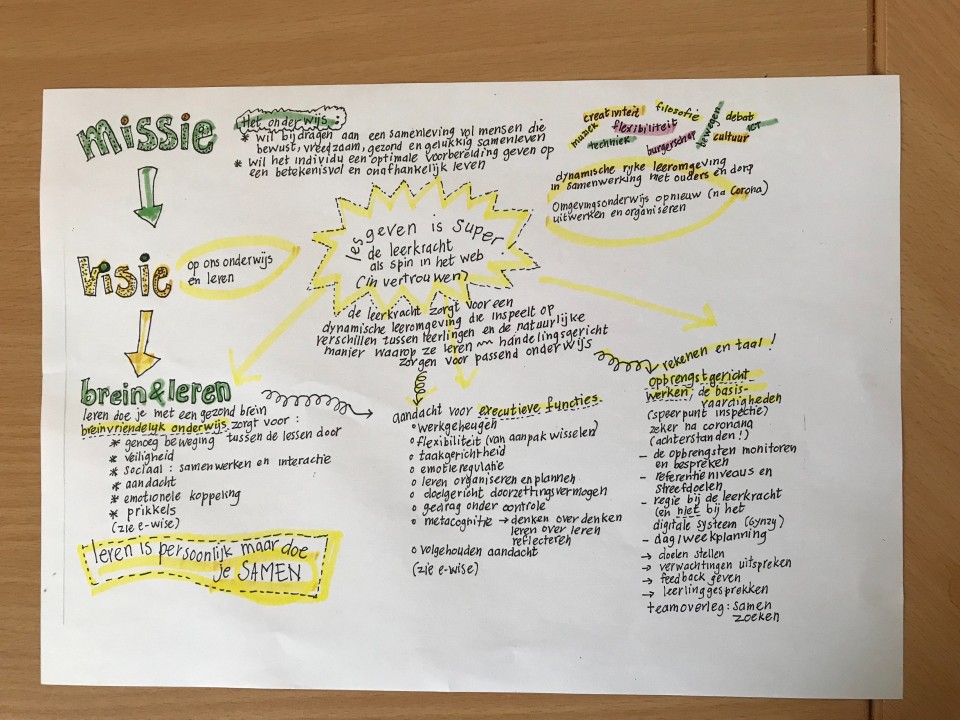 missie
Het onderwijs:
* wil bijdragen aan een samenleving vol mensen die
bewust, vreedzaam, gezond en gelukkig samenleven
* wil het individu een optimale voorbereiding geven op
een betekenisvol en onafhankelijk leven
creativiteit
filosofie
muziek
flexibiliteit
bewegen
debat
ICT
techniek
burgerschap
cultuur
dynamische rijke leeromgeving
in samenwerking met ouders en dorp
Omgevingsonderwijs opnieuw (na Corona)
uitwerken en organiseren
visie
op ons onderwijs
en leren
lesgeven is super
de leerkracht
als spin in het web
(in vertrouwen)
de leerkracht zorgt voor een
dynamische leeromgeving die inspeelt op
verschillen tussen leerlingen en de natuurlijke
manier waarop ze leren ~~ handelingsgericht
zorgen voor passend onderwijs
brein&leren
leren doe je met een gezond brein
breinvriendelijk onderwijs zorgt voor:
* genoeg beweging tussen de lessen door
* veiligheid
* sociaal: samenwerken en interactie
* aandacht
* emotionele koppeling
* prikkels
(zie e-wise)
leren is persoonlijk maar doe
je SAMEN
aandacht voor executieve functies
o werkgeheugen
o flexibiliteit (van aanpak wisselen)
o taakgerichtheid
o emotieregulatie
o leren organiseren en plannen
o doelgericht doorzettingsvermogen
o gedrag onder controle
o metacognitie → denken over denken
leren over leren
reflecteren
o volgehouden aandacht
(zie e-wise)
rekenen en taal!
opbrengstgericht
werken, de basis-
vaardigheden
(speerpunt inspectie)
zeker na corona
(achterstanden!)
- de opbrengsten monitoren
en bespreken
- referentieniveaus en
streefdoelen
- regie bij de leerkracht
(en niet bij het
digitale systeem (Gynzy)
- dag/weekplanning
→ doelen stellen
→ verwachtingen uitspreken
→ feedback geven
→ leerlinggesprekken
teamoverleg: samen
zoeken